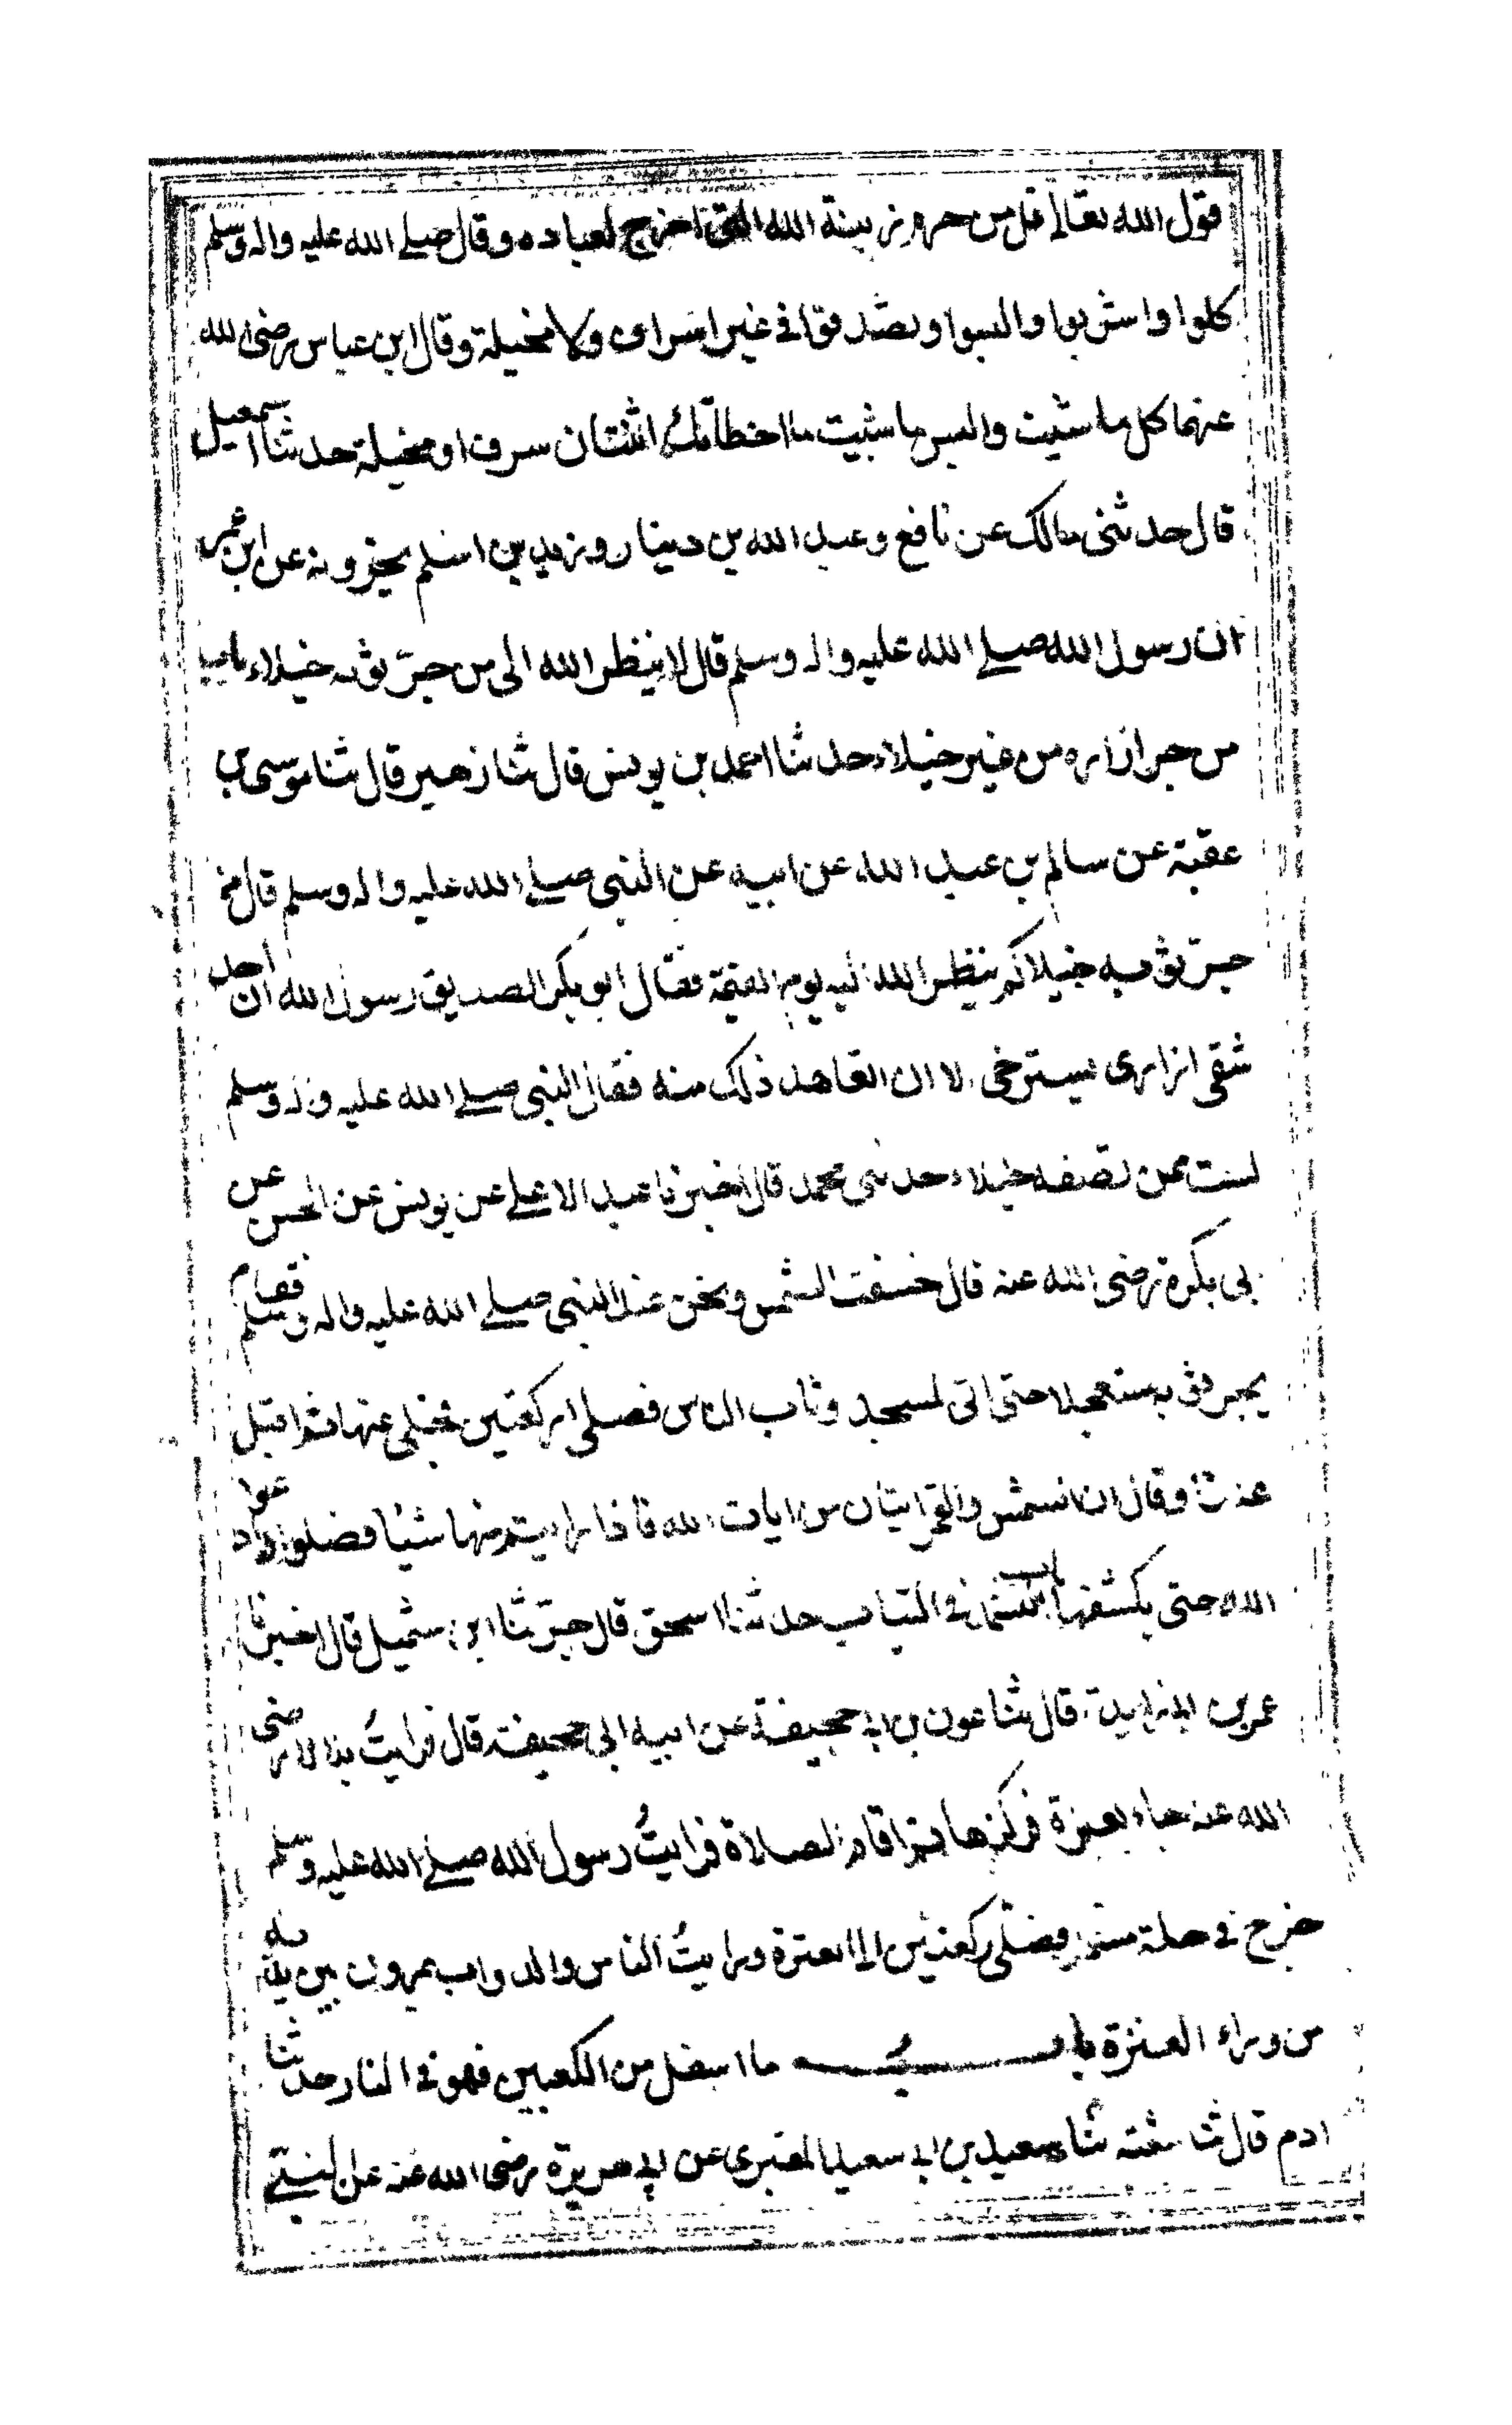 قول الله تعالى قل من حرم زينة الله التى اخرج لعباده وقال صلى الله عليه واله وسلم
كلوا واشربوا والبسوا وتصدقوا فى غير اسراف ولا مخيلة وقال ابن عباس رضى الله
عنهما كل ما شئت والبس ما شئت ما اخطاتك اثنتان سرف او مخيلة حدثنا اسمعيل
قال حدثنى مالك عن نافع وعبد الله بن دينار وزيد بن اسلم يخبرونه عن ابن عمر
ان رسول الله صلى الله عليه واله وسلم قال لا ينظر الله الى من جرّ ثوبه خيلاء باب
من جر ازاره من غير خيلاء حدثنا احمد بن يونس قال ثنا زهير قال ثنا موسى بن
عقبة عن سالم بن عبد الله عن ابيه عن النبى صلى الله عليه واله وسلم قال من
جرّ ثوبه خيلاء لم ينظر الله اليه يوم القيمة فقال ابو بكر الصديق رسول الله ان احد
شقى ازارى يسترخى الا ان اتعاهد ذلك منه فقال النبى صلى الله عليه واله وسلم
لست ممن تصنعه خيلاء حدثنى محمد قال اخبرنا عبد الاعلى عن يونس عن الحسن عن
بى بكرة رضى الله عنه قال خسفت الشمس ونحن عند النبى صلى الله عليه واله وسلم فقام
يجر ثوبه مستعجلا حتى اتى المسجد وثاب الناس فصلى ركعتين فجلى عنها ثم اقبل
علينا وقال ان الشمس والقمر ايتان من ايات الله فاذا رايتم منها شيئا فصلوا وادعوا
الله حتى يكشفها باب التشمر فى الثياب حدثنا اسحق قال حدّثنا ابن شميل قال اخبرنا
عمر بن ابى زايدة قال ثنا عون بن ابى جحيفة عن ابيه ابى جحيفة قال فرايتُ بلالا رضى
الله عنه جاء بعنزة فركزها ثم اقام الصلاة فرايتُ رسول الله صلى الله عليه وسلم
خرج فى حلة مشمرا فصلّى ركعتين الى العنزة ورايتُ الناس والدواب يمرون بين يديه
من وراء العنزة باب ما اسفل من الكعبين فهو فى النار حدثنا
ادم قال ثنا شعبة ثنا سعيد بن ابى سعيد المقبرى عن ابى هريرة رضى الله عنه عن النبى